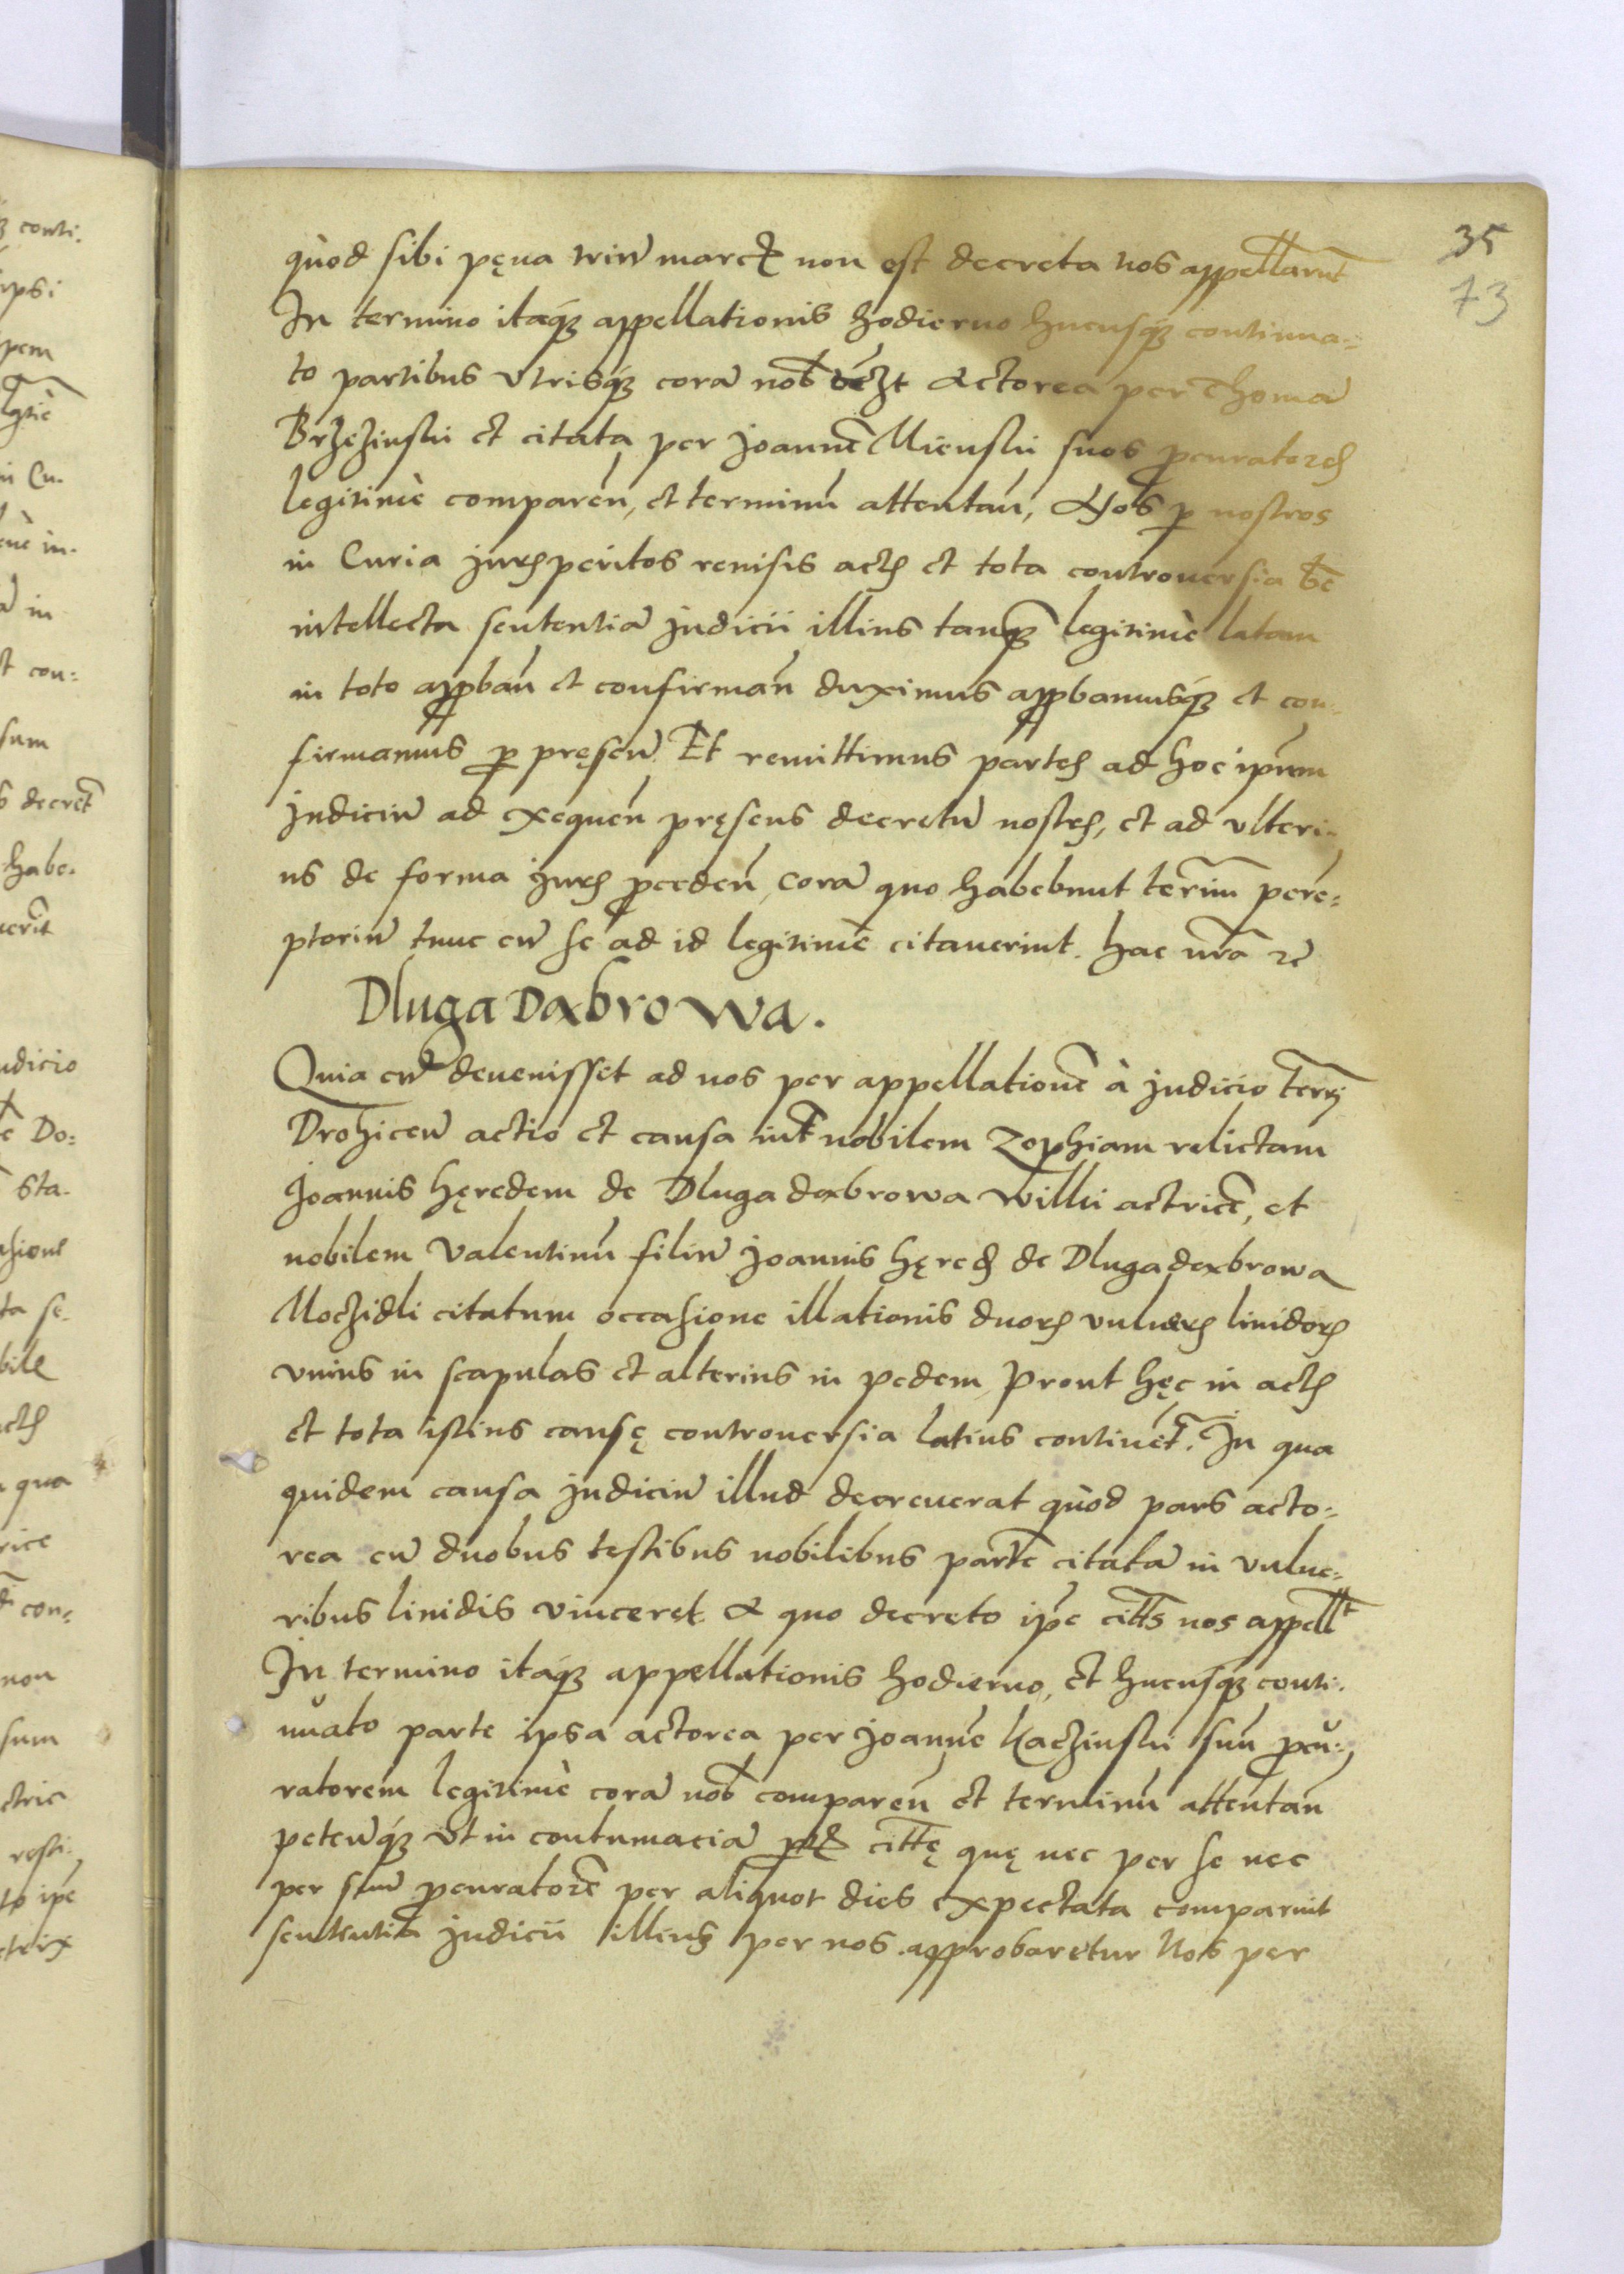 35
73
quòd sibi pęna triũ marcȝ non est decreta nos appellarũt
In termino itaq́ȝ appellationis hodierno hucusq́ȝ continua-
to partibus vtrisq́ȝ corã nob̃ Actorea per Thomã
Brzezinski et citata per Joannẽ Mienski suos ꝓcuratores
legitimè comparen̄, et terminũ attentan̄, Nos ꝑ nostros
in Curia juris peritos reuisis actis et tota controuersia bñ
intellecta sententiã judicii illius tanq̃ȝ legitimè latam
in toto approban̄ et confirman̄ duximus approbamusq́ȝ et con-
firmamus ꝑ pręsen̄. Et remittimus partes ad hoc ipsum
judiciũ ad exequen̄ pręsens decretũ nostrȝ, et ad vlteri-
us de forma juris ꝓceden̄, corã quo habebunt termiñ perẽ-
ptoriũ tunc cũ se ad id legitimè citauerint. hac nr̃a rc̃
Dluga Daxbrowa.
Quia cũ deuenisset ad nos per appellationẽ à judicio terrȓ
Drohicen̄ actio et causa int̃ nobilem Zophiam relictam
Joannis hęredem de Dluga daxbrowa Wilki actricẽ, et
nobilem Valentinũ filiũ Joannis hęredȝ de Dluga daxbrowa
Moczidli citatum occasione illationis duorȝ vulnerȝ liuidorȝ
vnius in scapulas et alterius in pedem, Prout hęc in actis
et tota istius causę controuersia latius continet̃. In qua
quidem causa judiciũ illud decreuerat quòd pars acto-
rea cũ duobus testibus nobilibus partẽ citatã in vulne-
ribus liuidis vinceret A quo decreto ip̃e citt̃s nos appell̃t
In termino itaq́ȝ appellationis hodierno, et hucusq́ȝ conti-
nuato parte ipsa actorea per Joannẽ Kaczinski suũ ꝓcu-
ratorem legitimè corã nob̃ comparen̄ et terminũ attentan̄
petenq́ȝ vt in contumaciã citt̃ę quę nec per se nec
per suũ ꝓcuratorẽ per aliquot dies expectata comparuit
sententia judicii illius per nos approbaretur Nos per